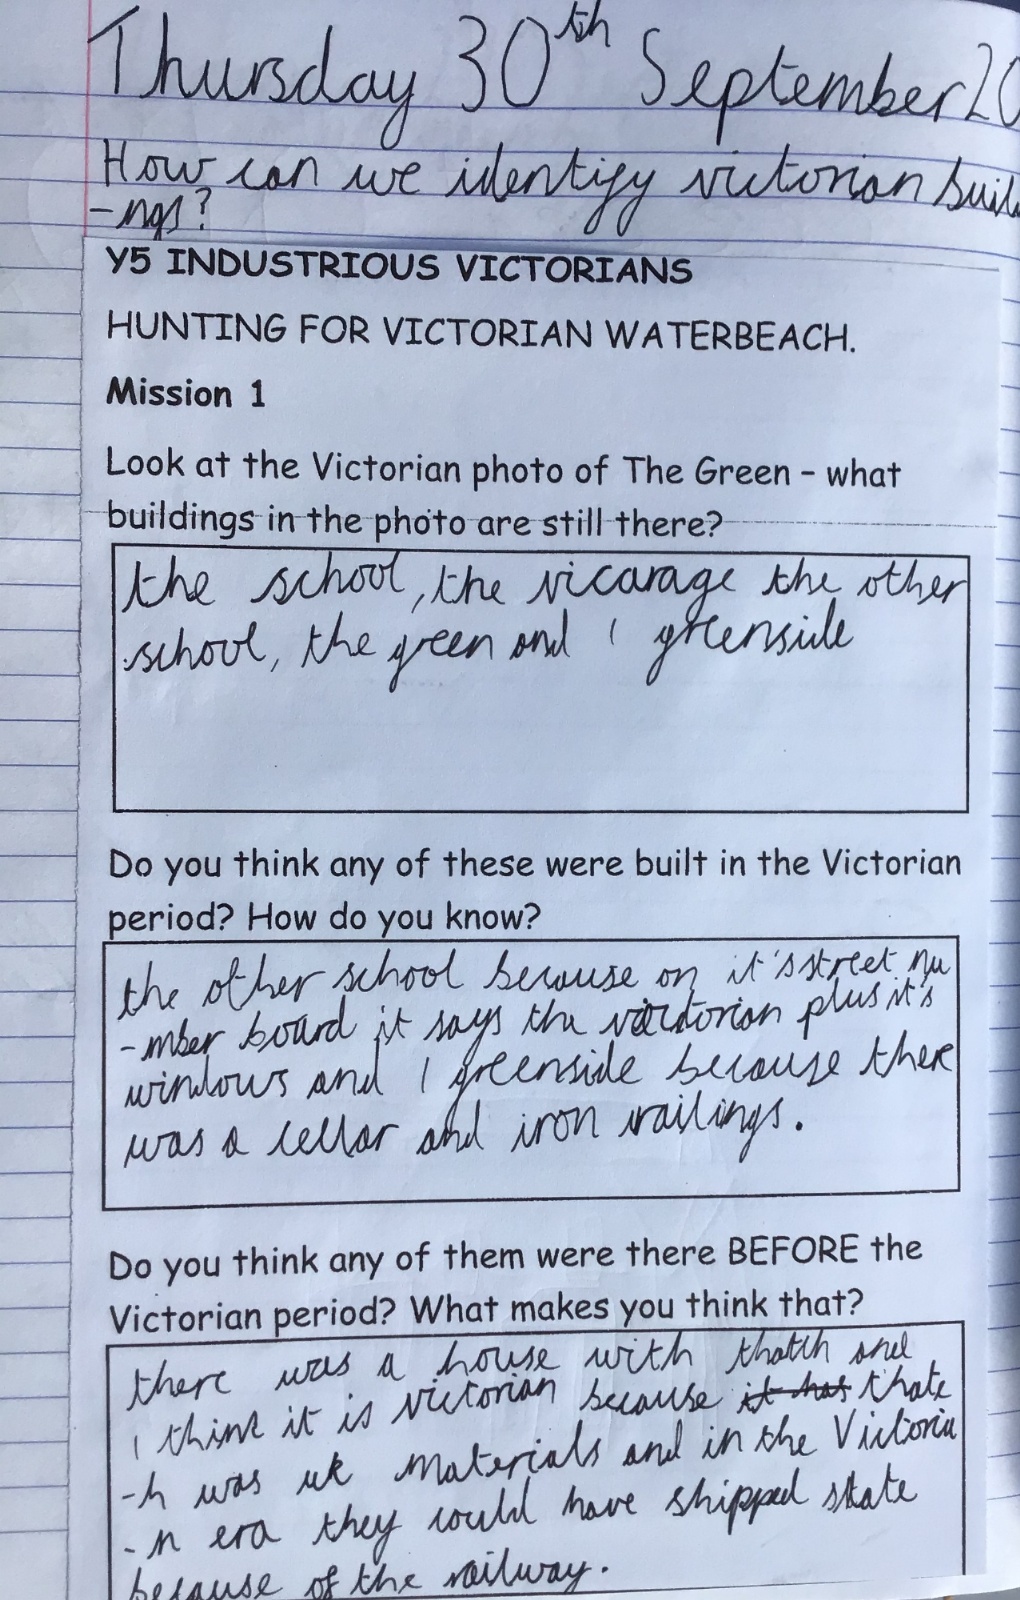 Thursday 30th September 20
How can we identify victorian buil
-ngs?
Y5 INDUSTRIOUS VICTORIANS
HUNTING FOR VICTORIAN WATERBEACH.
Mission 1
Look at the Victorian photo of The Green - what
buildings in the photo are still there?
the school, the vicarage the other
school, the green and 1 greenside
Do you think any of these were built in the Victorian
period? How do you know?
the other school because on it's street nu
-mber board it says the victorian plus it's
windows and 1 greenside because there
was a cellar and iron railings.
Do you think any of them were there BEFORE the
Victorian period? What makes you think that?
there was a house with thatch and
i think it is victorian because it has thatc
-h was uk materials and in the Victoria
-n era they could have shipped slate
because of the railway.